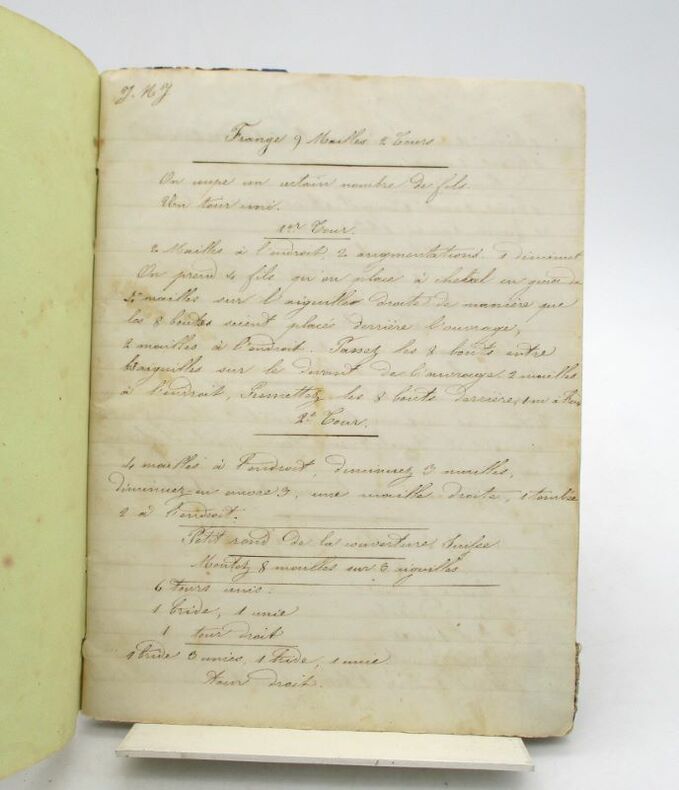 J. M J
Frange 9 Mailles 2 Tours
On coupe un certain nombre de fils.
Un tour uni.
1er Tour.
2 Mailles à l'endroit, 2 augmentations. 1
On prend 4 fils qu'on place à cheval en
mailles sur l'aiguille droite de manière que
les 8 bouts soient placés derrière l'ouvrage,
2 mailles à l'endroit. Passez les 8 bouts entre
aiguilles sur le devant de l'ouvrage. 2 mailles
à l'endroit, Remettez les 8 bouts derrière, 1 m à
2e Tour.
4 mailles à l'endroit, diminuez 3 mailles,
diminuez en encore 3, une maille droite, 1
2 à l'endroit.
Petit rond de la couverture Suisse
Montez 8 mailles sur 3 aiguilles
6 tours unis.
1 bride, 1 unie
1 tour droit
1 bride 3 unies, 1 bride, 1 unie
tour droit.